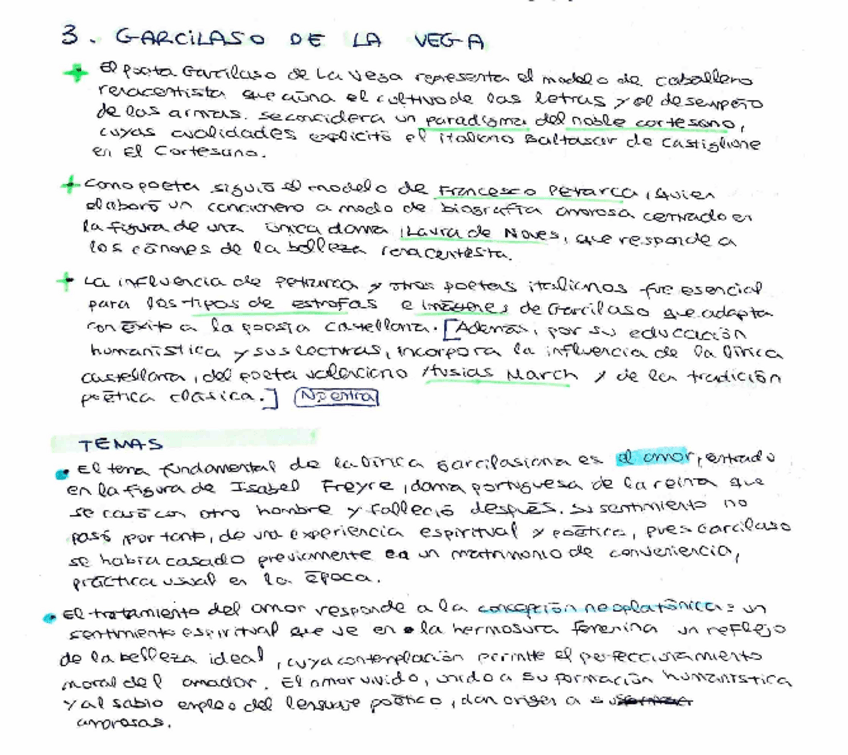 3. GARCILASO DE LA VEGA
+ El poeta Garcilaso de la Vega representa el modelo de caballero
renacentista que aúna el cultivo de las letras y el desempeño
de las armas. se considera un paradigma del noble cortesano,
cuyas cualidades explicitó el italiano Baltasar de Castiglione
en El Cortesano.
+ Como poeta siguió el modelo de Francesco Petrarca, quien
elaboró un cancionero a modo de biografía amorosa centrado en
la figura de una única dama, Laura de Noves, que responde a
los cánones de la belleza renacentista.
+ La influencia de Petrarca y otros poetas italianos fue esencial
para los tipos de estrofas e imágenes de Garcilaso que adapta
con éxito a la poesía castellana. [Además, por su educación
humanística y sus lecturas, incorpora la influencia de la lírica
castellana, del poeta valenciano Ausias March y de la tradición
poética clásica.] No entra
TEMAS
• El tema fundamental de la lírica garcilasiana es el amor, centrado
en la figura de Isabel Freyre, dama portuguesa de la reina que
se casó con otro hombre y falleció después. Su sentimiento no
pasó, por tanto, de una experiencia espiritual y poética, pues Garcilaso
se había casado previamente en un matrimonio de conveniencia,
práctica usual en la época.
• El tratamiento del amor responde a la concepción neoplatónica: un
sentimiento espiritual que ve en la hermosura femenina un reflejo
de la belleza ideal, cuya contemplación permite el perfeccionamiento
moral del amador. El amor vivido, unido a su formación humanística
y al sabio empleo del lenguaje poético, dan origen a su
amorosas.